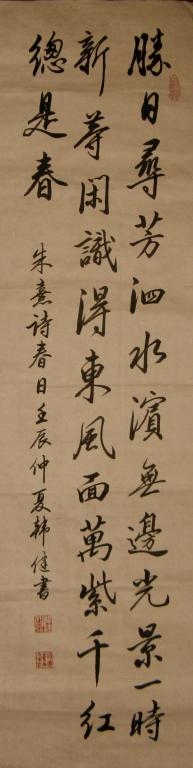 勝日尋芳泗水濱無邊光景一時
新等閑識得東風面萬紫千紅
總是春
朱熹詩春日壬辰仲夏韩健書